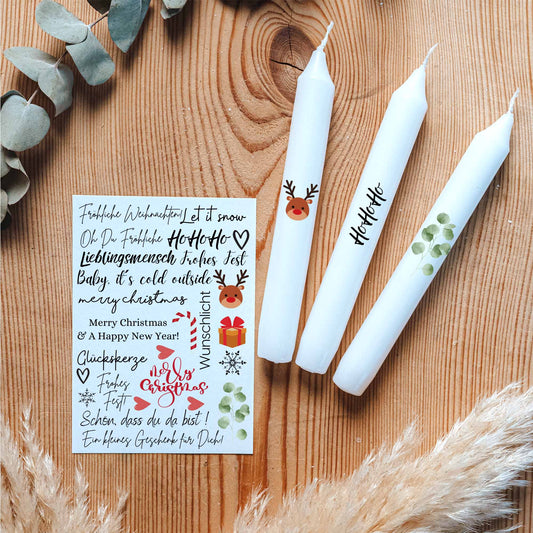 Fröhliche Weihnachten! Let it snow
Oh Du Fröhliche HoHoHo
Lieblingsmensch Frohes Fest
Baby, it's cold outside
merry christmas
Wunschlicht
Merry Christmas
& A Happy New Year!
Glückskerze
Merry
Christmas
Frohes
Fest
Schön, dass du da bist !
Ein kleines Geschenk für Dich!
HoHoHo